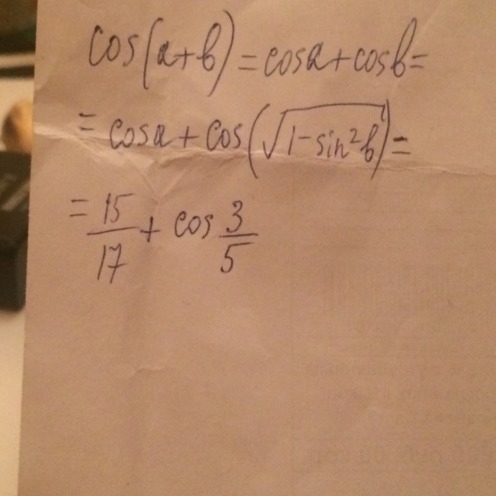 cos(a+b)=cosa+cosb=
=cosa+cos(√1-sin²b)=
=15/17+cos 3/5